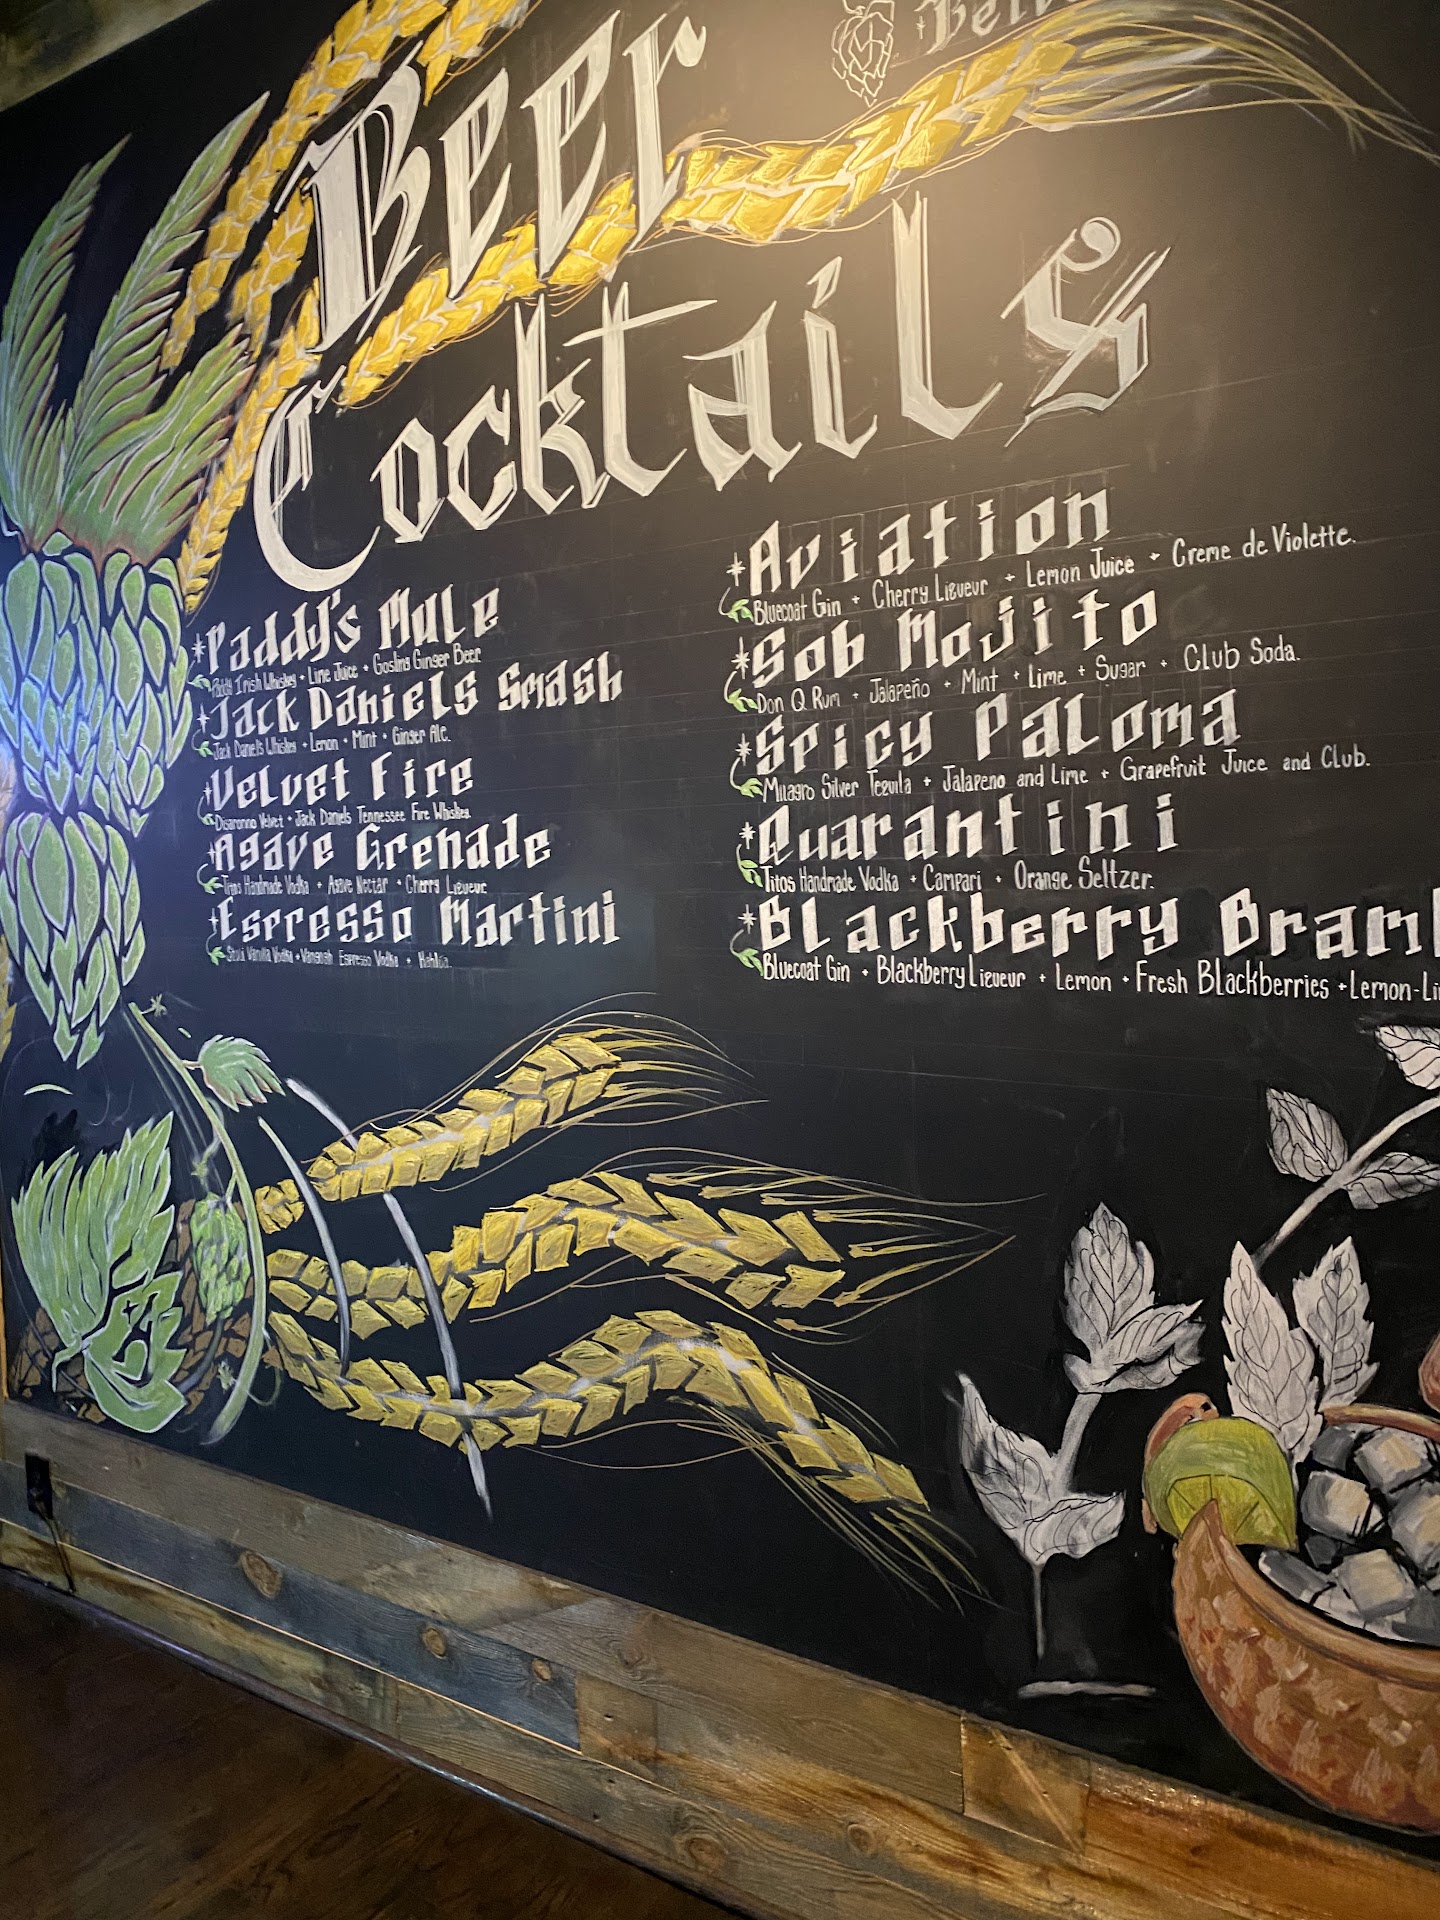 Beer
Cocktails
Paddy's Mule
Paddy Irish Whiskey + Lime Juice + Goslins Ginger Beer.
Jack Daniels Smash
Jack Daniel's Whiskey + Lemon + Mint + Ginger Ale.
Velvet Fire
Disaronno Velvet + Jack Daniels Tennessee Fire Whiskey.
Agave Grenade
Titos Handmade Vodka + Agave Nectar + Cherry Liqueur
Espresso Martini
Stoli Vanilla Vodka + Espresso Vodka + Kahlúa.
Aviation
Bluecoat Gin + Cherry Liqueur + Lemon Juice + Creme de Violette.
SoB Mojito
Don Q Rum + Jalapeño + Mint + Lime + Sugar + Club Soda.
Spicy Paloma
Milagro Silver Tequila + Jalapeno and Lime + Grapefruit Juice and Club.
Quarantini
Titos Handmade Vodka + Campari + Orange Seltzer.
Blackberry Bram
Bluecoat Gin + Blackberry Liqueur + Lemon + Fresh Blackberries + Lemon-Li